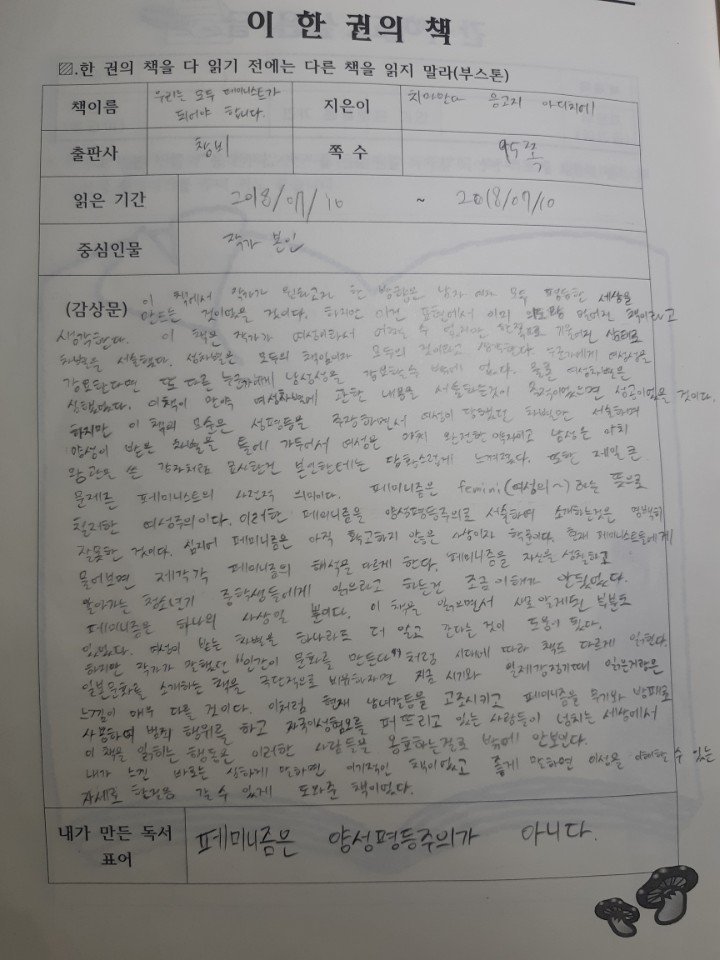 이 한 권의 책
▨.한 권의 책을 다 읽기 전에는 다른 책을 읽지 말라(부스톤)
책이름 우리는 모두 페미니스트가 되어야 합니다. 지은이 치마만다 응고지 아디치에
출판사 창비 쪽 수 95쪽
읽은 기간 2018/07/10 ~ 2018/07/10
중심인물 작가 본인
(감상문) 이 책에서 작가가 원하고자 한 방향은 남자 여자 모두 평등한 세상을
만드는 것이었을 것이다. 하지만 이건 표현에서 이미 의도를 벗어난 책이라고
생각한다. 이 책은 작가가 여성이라서 어쩔 수 없지만 한쪽으로 기울어진 상태로
차별을 서술했다. 성차별은 모두의 책임이자 모두의 것이라고 생각한다. 누군가에게 여성성을
강요한다면 또 다른 누군가에게 남성성을 강요할 수 밖에 없다. 물론 여성차별은
심했었다. 이 책이 만약 여성차별에 관한 내용을 서술하는것이 목적이었으면 성공이었을 것이다.
하지만 이 책의 모순은 성평등을 주장하면서 여성이 당했던 차별만 서술하며
양성이 받은 차별을 틀에 가두어서 여성은 마치 완전한 약자이고 남성은 마치
왕관을 쓴 강자처럼 묘사한건 본인한테는 당황스럽게 느껴졌다. 또한 제일 큰
문제는 페미니스트의 사전적 의미이다. 페미니즘은 femini(여성의~) 라는 뜻으로
철저한 여성주의이다. 이러한 페미니즘을 양성평등주의로 서술하여 소개하는것은 명백히
잘못한 것이다. 심지어 페미니즘은 아직 확고하지 않은 사상이자 학문이다. 현재 페미니스트들에게
물어보면 제각각 페미니즘의 해석을 다르게 한다. 페미니즘을 자신을 성찰하고
알아가는 청소년기 중학생들에게 읽으라고 하는건 조금 이해가 안됐었다.
페미니즘은 하나의 사상일 뿐이다. 이 책을 읽으면서 새로 알게된 부분도
있었다. 여성이 받는 차별을 하나라도 더 알고 간다는 것이 도움이 됐다.
하지만 작가가 말했던 "인간이 문화를 만든다" 처럼 시대에 따라 책도 다르게 읽힌다.
일본문화를 소개하는 책을 극단적으로 비유하자면 지금 시기와 일제강점기때 읽은거랑은
느낌이 매우 다를 것이다. 이처럼 현재 남녀갈등을 고조시키고 페미니즘을 무기와 방패로
사용하여 범죄 행위를 하고 자국이성혐오를 퍼뜨리고 있는 사람들이 넘치는 세상에서
이 책을 읽히는 행동은 이러한 사람들을 옹호하는걸로 밖에 안보인다.
내가 느낀 바로는 심하게 말하면 이기적인 책이었고 좋게 말하면 이성을 이해할 수 있는
자세로 한걸음 갈 수 있게 도와준 책이었다.
내가 만든 독서 표어 페미니즘은 양성평등주의가 아니다.